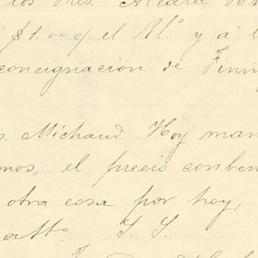 los Sres. Alcalá
$1.00 q el Rl.º y á l
concignacion de
s. Michaud. Hoy man
mos, el precio conben
otra cosa por hoy,
atto. S. S.